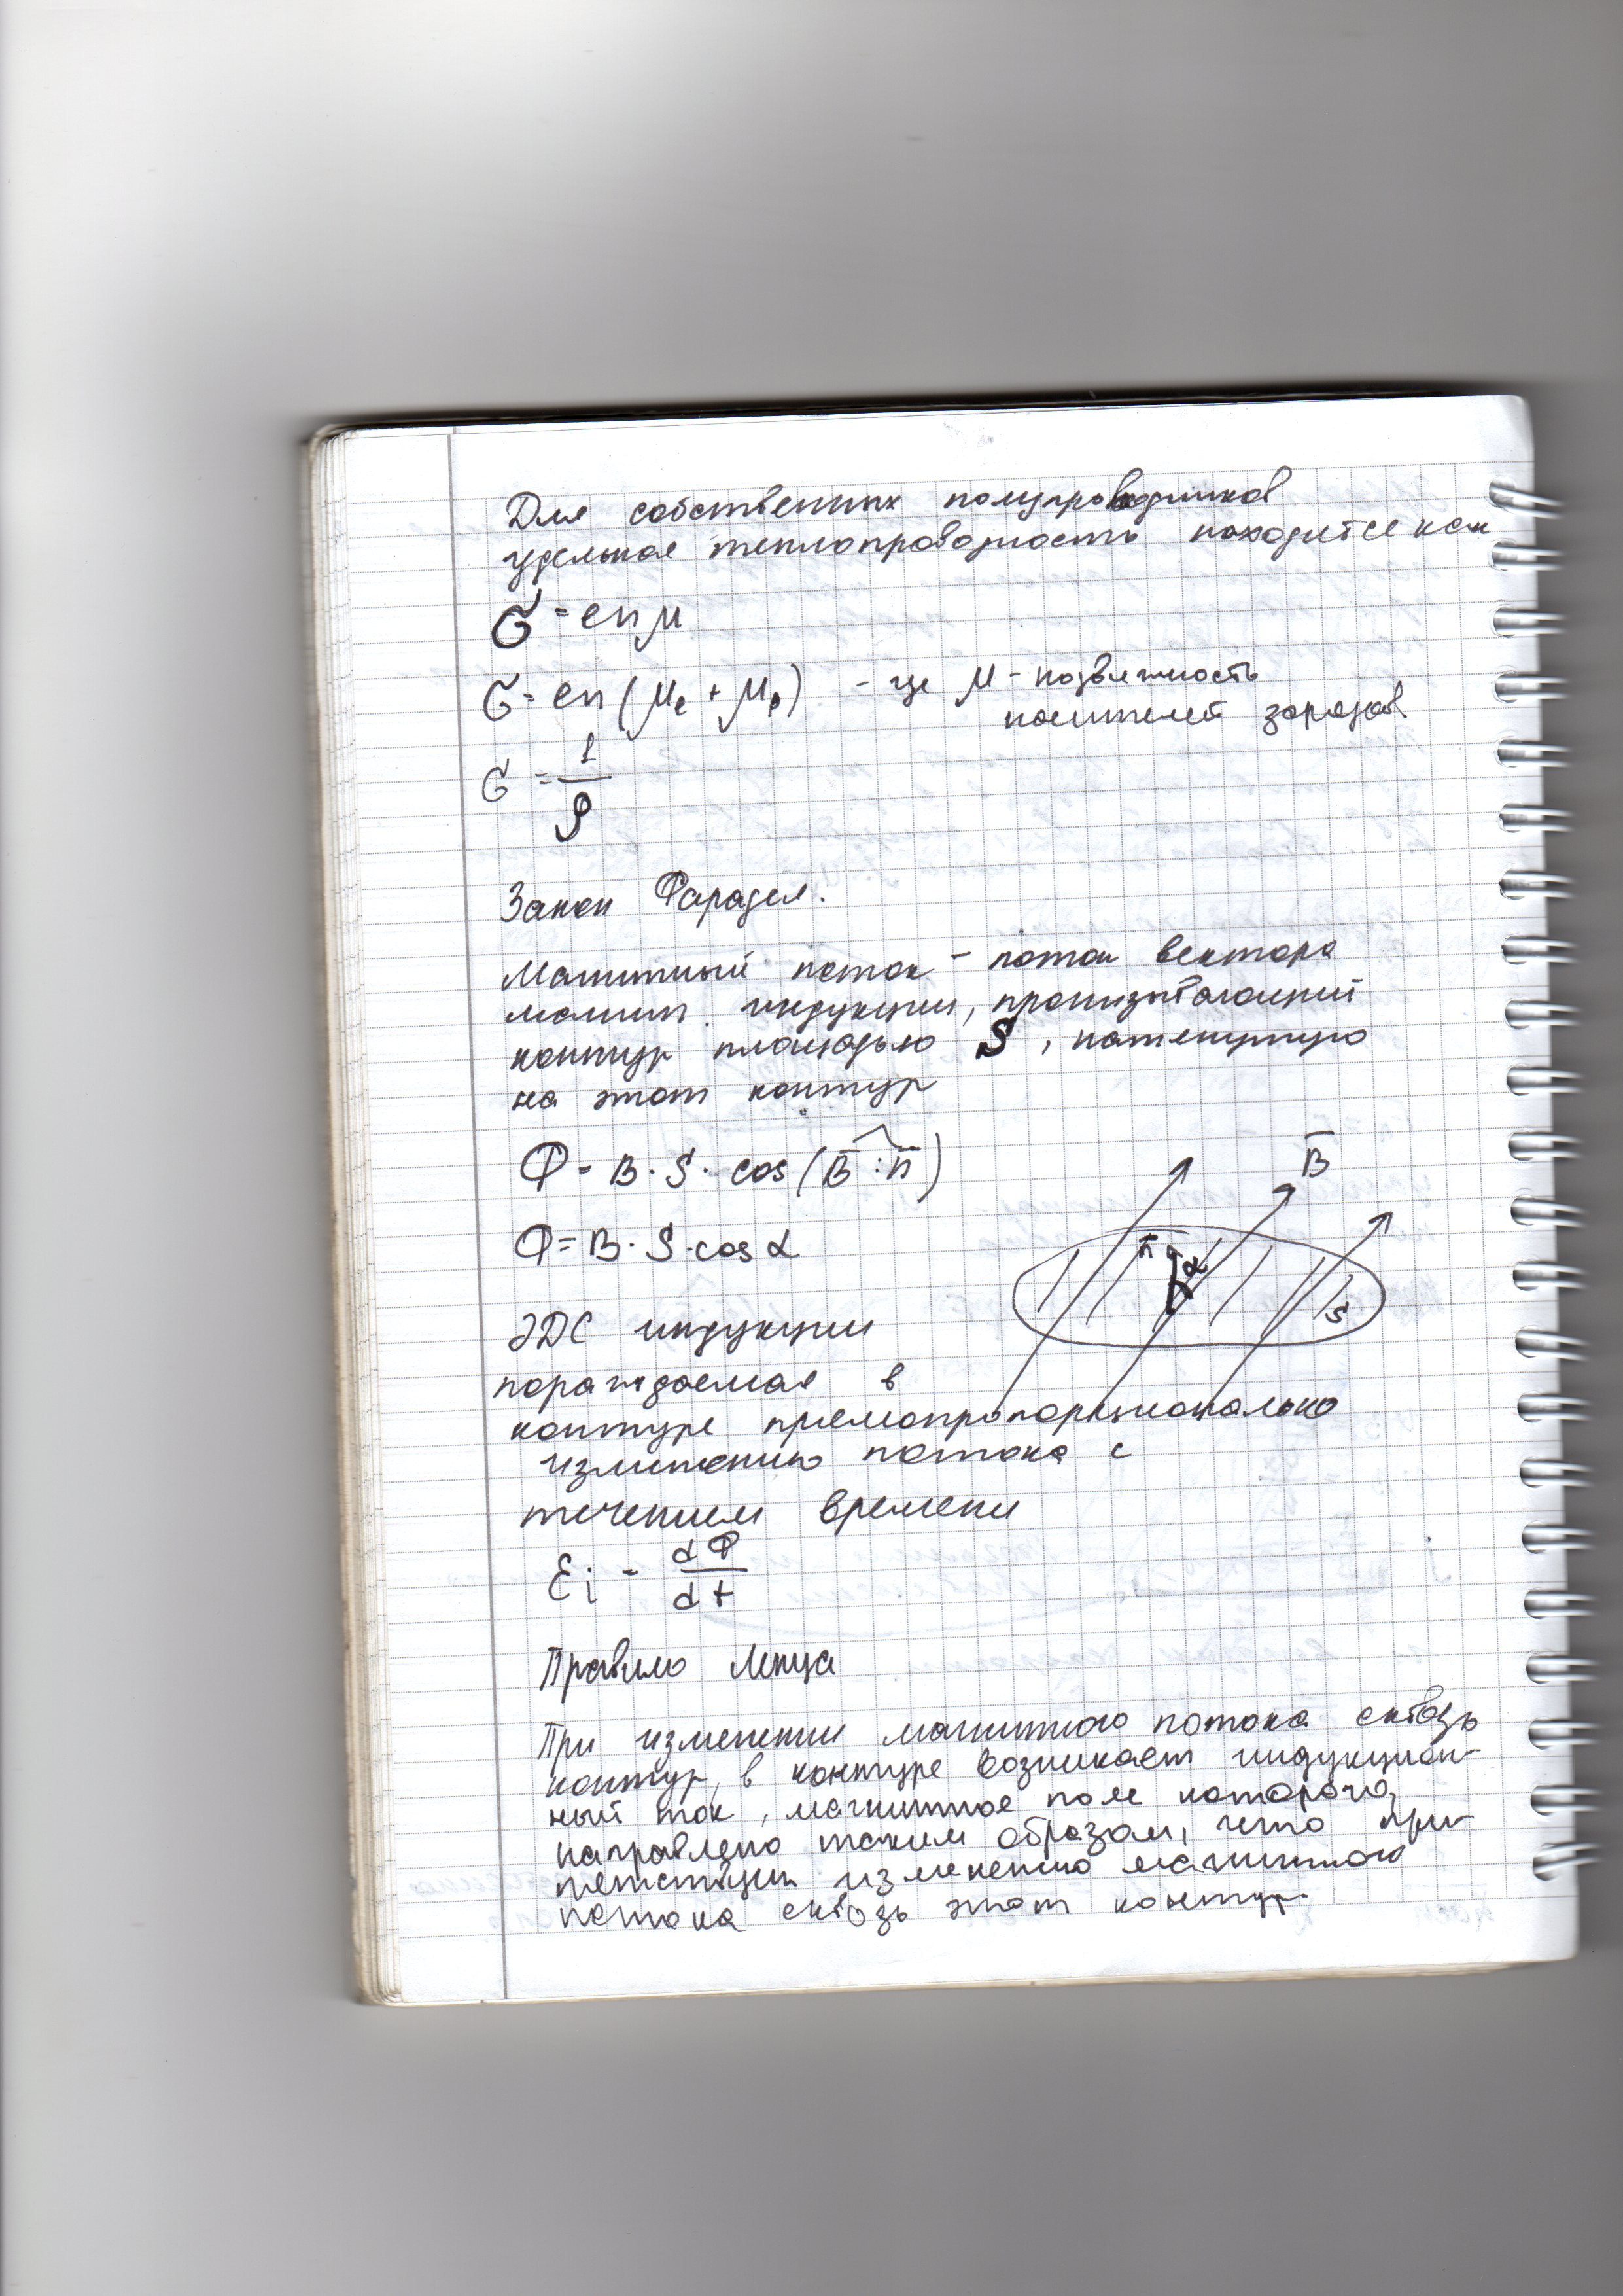 Для собственных полупроводников
удельная теплопроводность находится как
σ = enμ
σ = en(μe + μp) - где μ - подвижность
носителей зарядов
σ = 1/ρ
Закон Фарадея.
Магнитный поток - поток вектора
магнит. индукции, пронизывающий
контур площадью S, натянутую
на этот контур
Ф = B · S · cos(B̅ : n̅)
B̅
Ф = B · S · cos α
n̅ α
S
ЭДС индукции
пораждаемая в
контуре прямопропорционально
изменению потока с
течением времени
Ɛi - dФ/dt
Правило Ленца
При изменении магнитного потока сквозь
контур, в контуре возникает индукцион-
ный ток, магнитное поле которого,
направлено таким образом, что
изменению магнитного
потока сквозь этот контур.